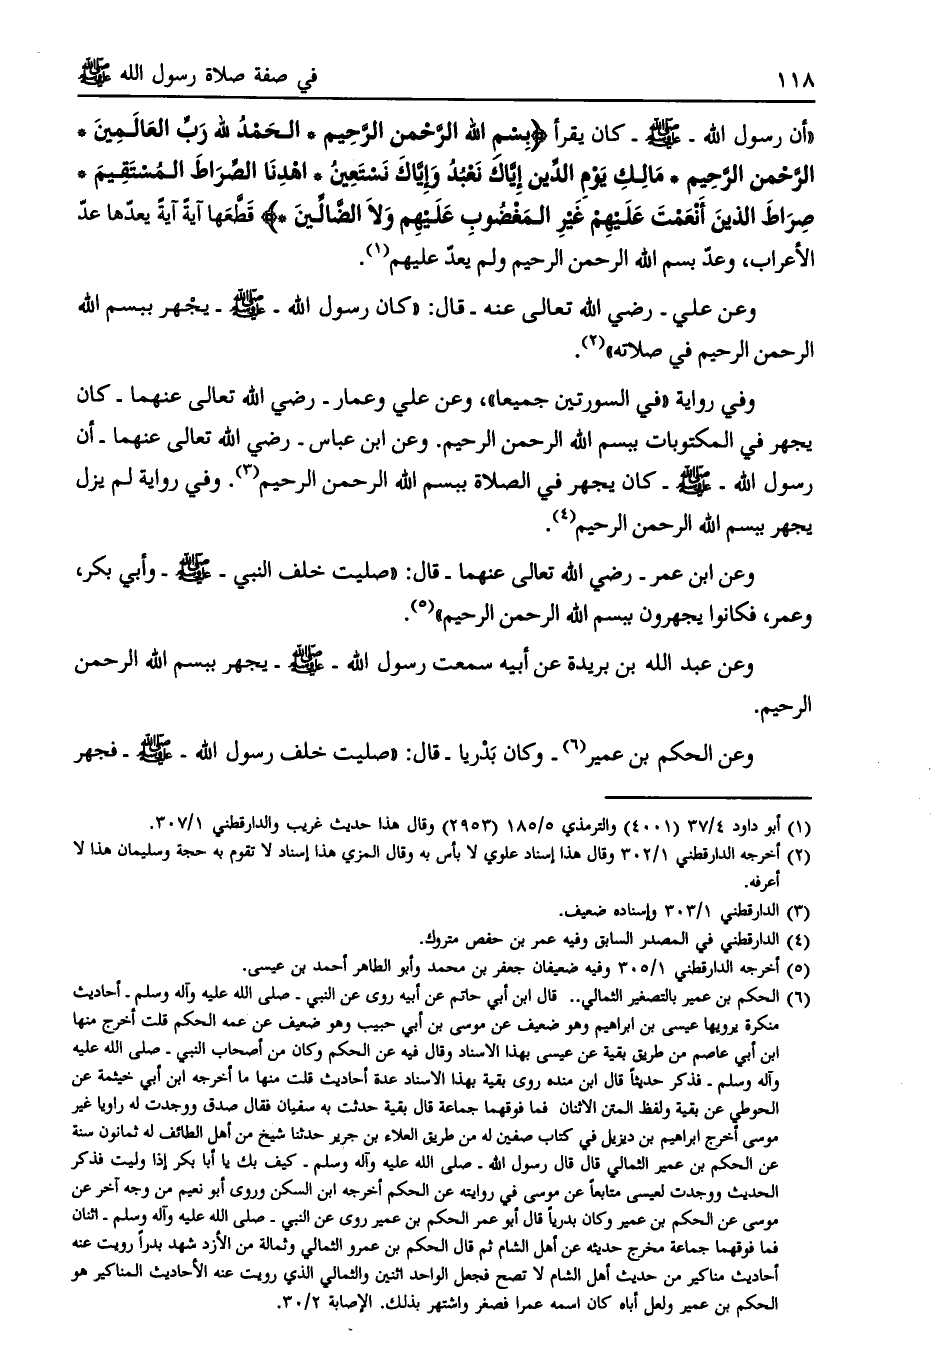 ١١٨ في صفة صلاة رسول الله ﷺ
«أن رسول الله ـ ﷺ ـ كان يقرأ ﴿بِسْمِ الله الرَّحْمنِ الرَّحِيمِ * الـحَمْدُ لله رَبِّ العَالَـمِينَ *
الرَّحْمنِ الرَّحِيمِ * مَالِـكِ يَوْمِ الدِّينِ إِيَّاكَ نَعْبُدُ وَإِيَّاكَ نَسْتَعِينُ * اهْدِنَا الصِّرَاطَ الـمُسْتَقِيمَ *
صِرَاطَ الذينَ أَنْعَمْتَ عَلَـيْهِمْ غَيْرِ الـمَغْضُوبِ عَلَـيْهِم وَلاَ الضَّالِّـينَ *﴾ قَطَّعَها آيةً آيةً يعدّها عدّ
الأعراب، وعدّ بسم الله الرحمن الرحيم ولم يعدّ عليهم(١).
وعن علي ـ رضي الله تعالى عنه ـ قال: «كان رسول الله ـ ﷺ ـ يجْهر ببسم الله
الرحمن الرحيم في صلاته»(٢).
وفي رواية «في السورتين جميعا»، وعن علي وعمار ـ رضي الله تعالى عنهما ـ كان
يجهر في المكتوبات ببسم الله الرحمن الرحيم. وعن ابن عباس ـ رضي الله تعالى عنهما ـ أن
رسول الله ـ ﷺ ـ كان يجهر في الصلاة ببسم الله الرحمن الرحيم(٣). وفي رواية لم يزل
يجهر ببسم الله الرحمن الرحيم(٤).
وعن ابن عمر ـ رضي الله تعالى عنهما ـ قال: «صليت خلف النبي ـ ﷺ ـ وأبي بكر،
وعمر، فكانوا يجهرون ببسم الله الرحمن الرحيم»(٥).
وعن عبد الله بن بريدة عن أبيه سمعت رسول الله ـ ﷺ ـ يجهر ببسم الله الرحمن
الرحيم.
وعن الحكم بن عمير(٦) ـ وكان بَدْريا ـ قال: «صليت خلف رسول الله ـ ﷺ ـ فجهر
(١) أبو داود ٣٧/٤ (٤٠٠١) والترمذي ١٨٥/٥ (٢٩٥٣) وقال هذا حديث غريب والدارقطني ٣٠٧/١.
(٢) أخرجه الدارقطني ٣٠٢/١ وقال هذا إسناد علوي لا بأس به وقال المزي هذا إسناد لا تقوم به حجة وسليمان هذا لا
أعرفه.
(٣) الدارقطني ٣٠٣/١ وإسناده ضعيف.
(٤) الدارقطني في المصدر السابق وفيه عمر بن حفص متروك.
(٥) أخرجه الدارقطني ٣٠٥/١ وفيه ضعيفان جعفر بن محمد وأبو الطاهر أحمد بن عيسى.
(٦) الحكم بن عمير بالتصغير الثمالي.. قال ابن أبي حاتم عن أبيه روى عن النبي ـ صلى الله عليه وآله وسلم ـ أحاديث
منكرة يرويها عيسى بن ابراهيم وهو ضعيف عن موسى بن أبي حبيب وهو ضعيف عن عمه الحكم قلت أخرج منها
ابن أبي عاصم من طريق بقية عن عيسى بهذا الاسناد وقال فيه عن الحكم وكان من أصحاب النبي ـ صلى الله عليه
وآله وسلم ـ فذكر حديثاً قال ابن منده روى بقية بهذا الاسناد عدة أحاديث قلت منها ما أخرجه ابن أبي خيثمة عن
الحوطي عن بقية ولفظ المتن الاثنان فما فوقهما جماعة قال بقية حدثت به سفيان فقال صدق ووجدت له راويا غير
موسى أخرج ابراهيم بن ديزيل في كتاب صفين له من طريق العلاء بن جرير حدثنا شيخ من أهل الطائف له ثمانون سنة
عن الحكم بن عمير الثمالي قال قال رسول الله ـ صلى الله عليه وآله وسلم ـ كيف بك يا أبا بكر إذا وليت فذكر
الحديث ووجدت لعيسى متابعاً عن موسى في روايته عن الحكم أخرجه ابن السكن وروى أبو نعيم من وجه آخر عن
موسى عن الحكم بن عمير وكان بدرياً قال أبو عمر الحكم بن عمير روى عن النبي ـ صلى الله عليه وآله وسلم ـ اثنان
فما فوقهما جماعة مخرج حديثه عن أهل الشام ثم قال الحكم بن عمرو الثمالي وثمالة من الأزد شهد بدراً رويت عنه
أحاديث مناكير من حديث أهل الشام لا تصح فجعل الواحد اثنين والثمالي الذي رويت عنه الأحاديث المناكير هو
الحكم بن عمير ولعل أباه كان اسمه عمرا فصغر واشتهر بذلك. الإصابة ٣٠/٢.